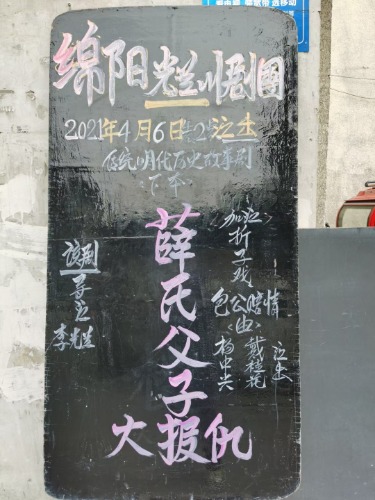 绵阳光兰川剧团
2021年4月6日上2演出
传统明代历史故事剧
下本
薛氏父子
大报仇
加演
折子戏
包公赔情
由 戴桂花
杨中兴 演出
该剧
导演
李光兰